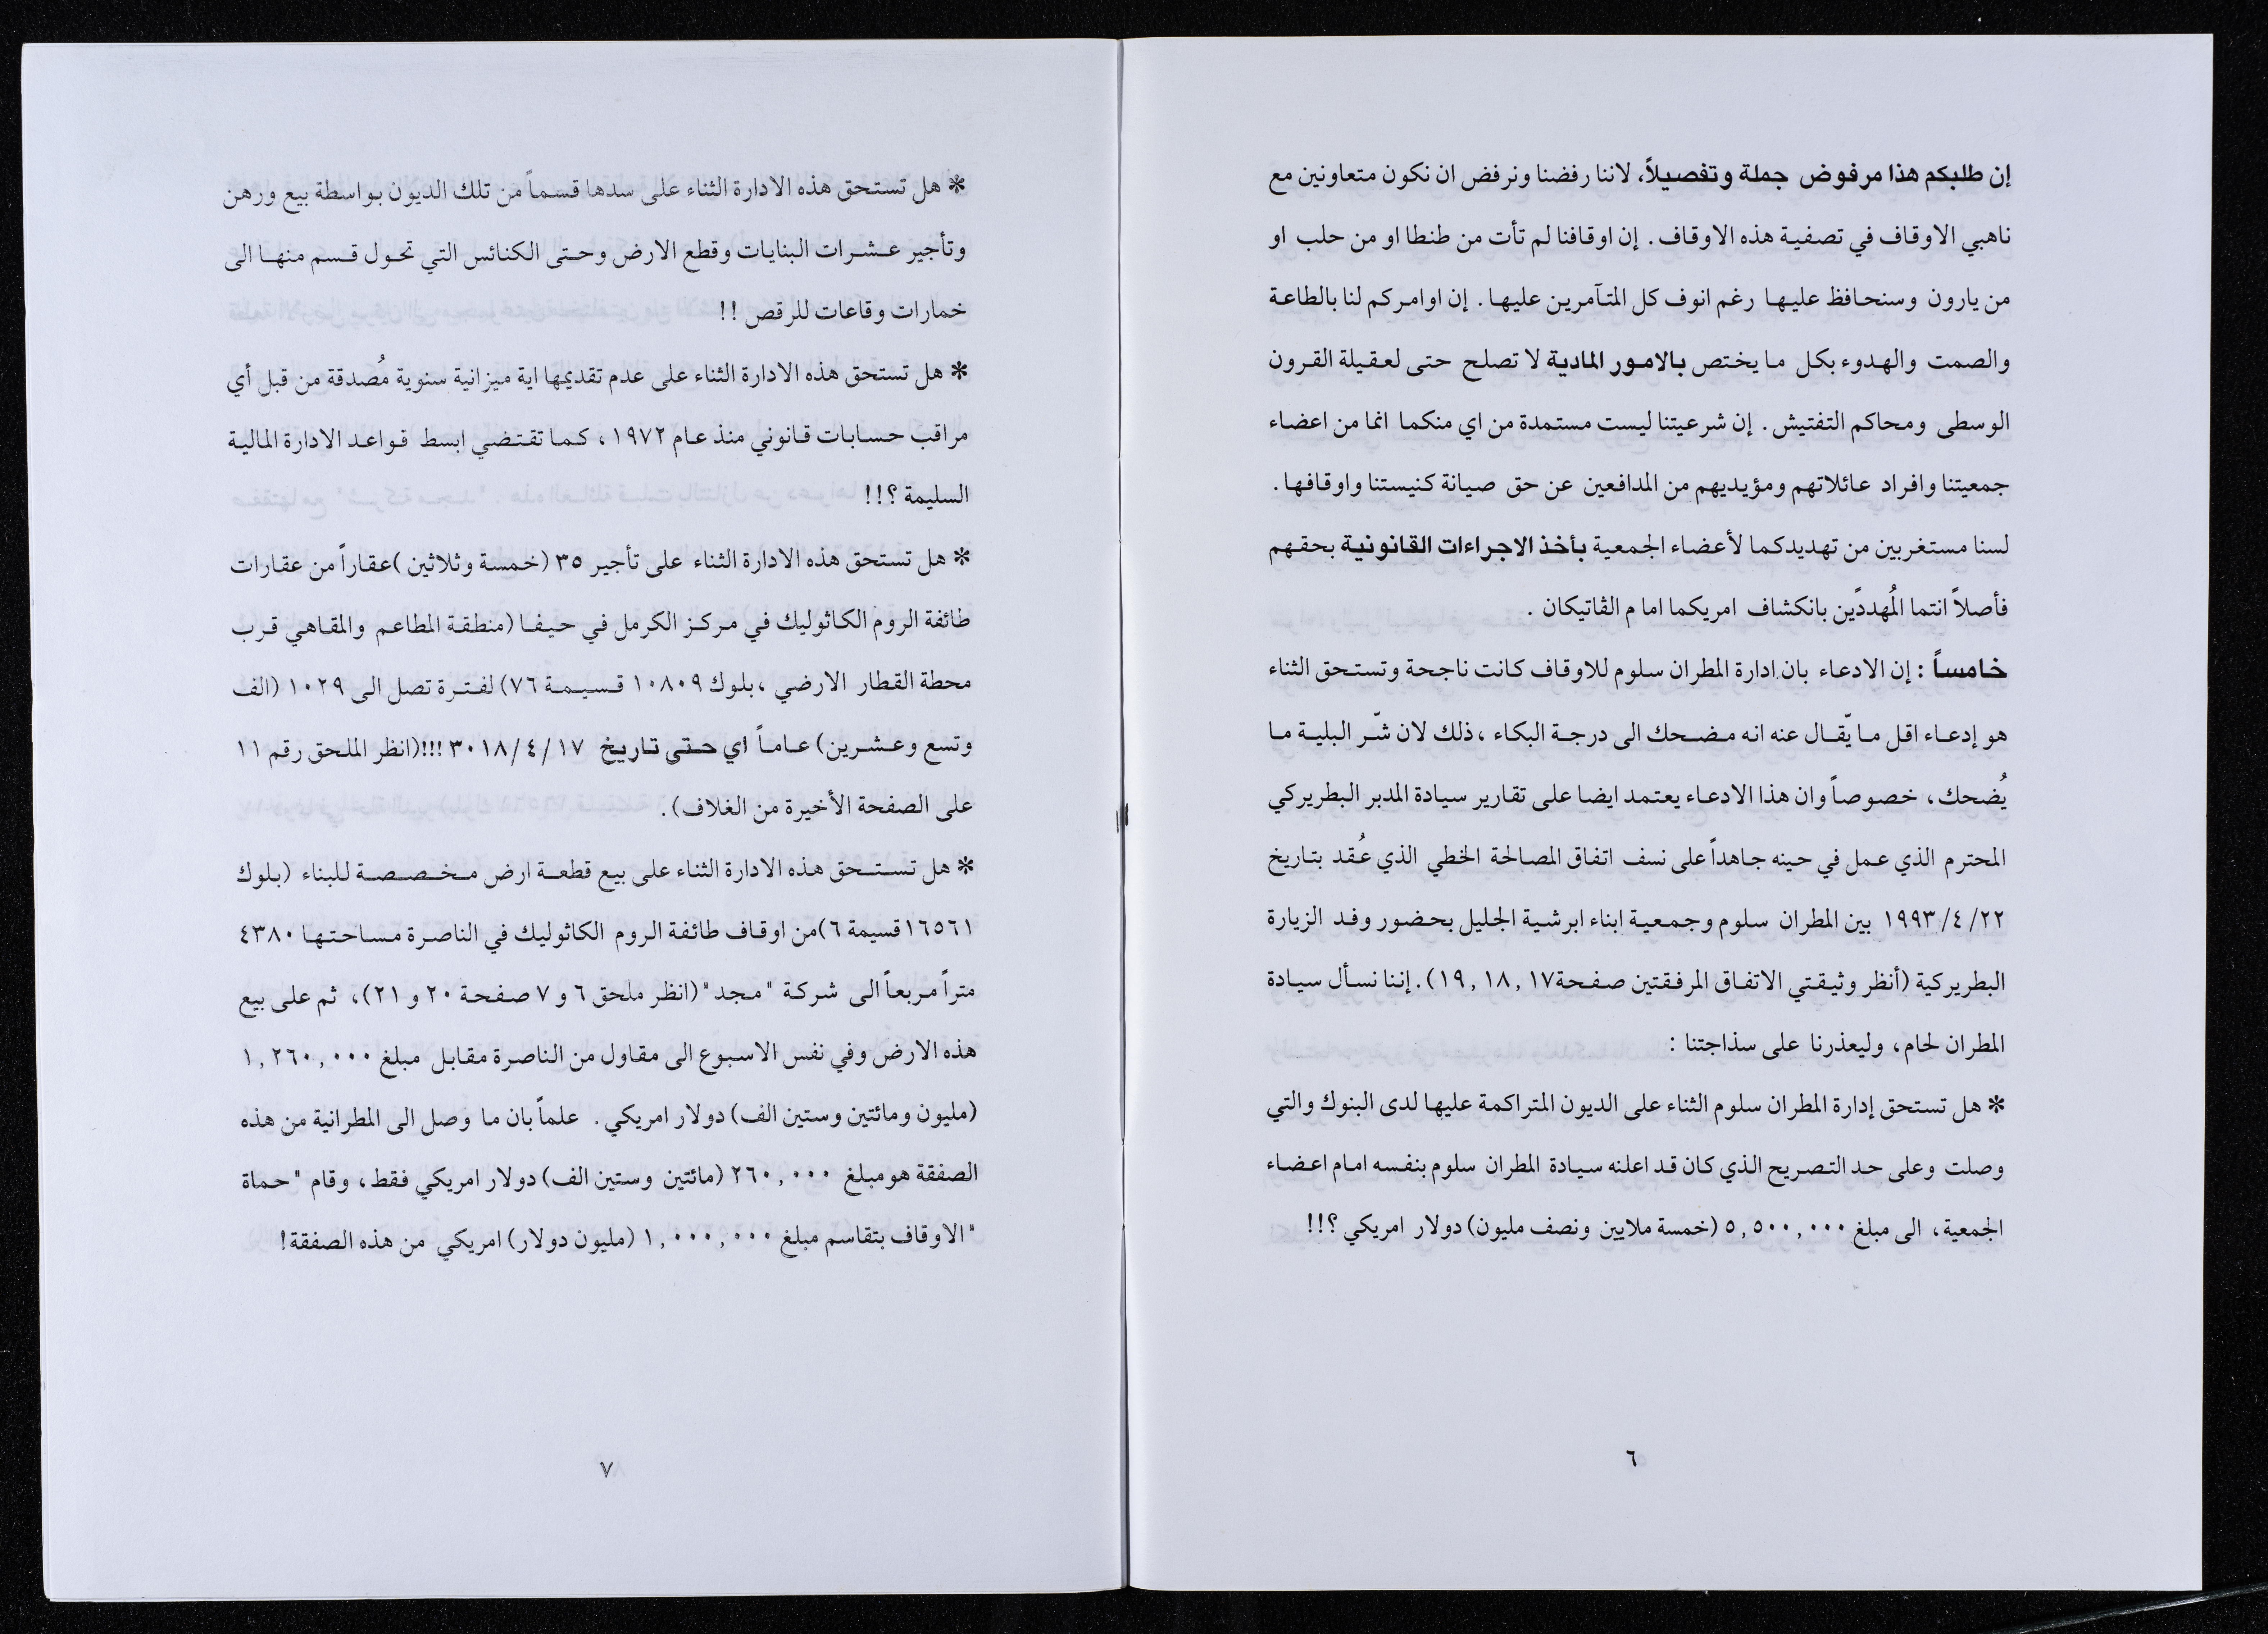 إن طلبكم هذا مرفوض جملة وتفصيلاً، لاننا رفضنا ونرفض ان نكون متعاونين مع
ناهبي الاوقاف في تصفية هذه الاوقاف. إن اوقافنا لم تأت من طنطا او من حلب او
من يارون وسنحافظ عليها رغم انوف كل المتآمرين عليها. إن اوامركم لنا بالطاعة
والصمت والهدوء بكل ما يختص بالامور المادية لا تصلح حتى لعقيلة القرون
الوسطى ومحاكم التفتيش. إن شرعيتنا ليست مستمدة من اي منكما انما من اعضاء
جمعيتنا وافراد عائلاتهم ومؤيديهم من المدافعين عن حق صيانة كنيستنا واوقافها.
لسنا مستغربين من تهديدكما لأعضاء الجمعية بأخذ الاجراءات القانونية بحقهم
فأصلاً انتما المُهددّين بانكشاف امريكما اما م الڤاتيكان .
خامساً : إن الادعاء بان ادارة المطران سلوم للاوقاف كانت ناجحة وتستحق الثناء
هو إدعاء اقل ما يّقال عنه انه مضحك الى درجة البكاء ، ذلك لان شّر البلية ما
يُضحك، خصوصاً وان هذا الادعاء يعتمد ايضا على تقارير سيادة المدبر البطريركي
المحترم الذي عمل في حينه جاهداً على نسف اتفاق المصالحة الخطي الذي عُقد بتاريخ
٢٢/ ٤/ ١٩٩٣ بين المطران سلوم وجمعية ابناء ابرشية الجليل بحضور وفد الزيارة
البطريركية (أنظر وثيقتي الاتفاق المرفقتين صفحة١٧ , ١٨ , ١٩). إننا نسأل سيادة
المطران لحام، وليعذرنا على سذاجتنا :
* هل تستحق إدارة المطران سلوم الثناء على الديون المتراكمة عليها لدى البنوك والتي
وصلت وعلى حد التصريح الذي كان قد اعلنه سيادة المطران سلوم بنفسه امام اعضاء
الجمعية، الى مبلغ ٥,٥٠٠,٠٠٠ (خمسة ملايين ونصف مليون) دولار امريكي ؟!!
٦
* هل تستحق هذه الادارة الثناء على سدها قسماً من تلك الديون بواسطة بيع ورهن
وتأجير عشرات البنايات وقطع الارض وحتى الكنائس التي تحول قسم منها الى
خمارات وقاعات للرقص !!
* هل تستحق هذه الادارة الثناء على عدم تقديمها اية ميزانية سنوية مُصدقة من قبل أي
مراقب حسابات قانوني منذ عام ١٩٧٢ ، كما تقتضي ابسط قواعد الادارة المالية
السليمة ؟!!
* هل تستحق هذه الادارة الثناء على تأجير ٣٥ (خمسة وثلاثين )عقاراً من عقارات
طائفة الروم الكاثوليك في مركز الكرمل في حيفا (منطقة المطاعم والمقاهي قرب
محطة القطار الارضي ،بلوك ١٠٨٠٩ قسيمة ٧٦) لفترة تصل الى ١٠٢٩ (الف
وتسع وعشرين) عاماً اي حتى تاريخ ١٧/ ٤/ ٣٠١٨ !!!(انظر الملحق رقم ١١
على الصفحة الأخيرة من الغلاف).
* هل تستحق هذه الادارة الثناء على بيع قطعة ارض مخصصة للبناء (بلوك
١٦٥٦١ قسيمة ٦)من اوقاف طائفة الروم الكاثوليك في الناصرة مساحتها ٤٣٨٠
متراً مربعاً الى شركة "مجد" (انظر ملحق ٦ و ٧ صفحة ٢٠ و ٢١)، ثم على بيع
هذه الارض وفي نفس الاسبوع الى مقاول من الناصرة مقابل مبلغ ١,٢٦٠,٠٠٠
(مليون ومائتين وستين الف) دولار امريكي. علماً بان ما وصل الى المطرانية من هذه
الصفقة هومبلغ ٢٦٠,٠٠٠ (مائتين وستين الف) دولار امريكي فقط، وقام "حماة
الاوقاف" بتقاسم مبلغ ١,٠٠٠,٠٠٠ (مليون دولار) امريكي من هذه الصفقة!
٧